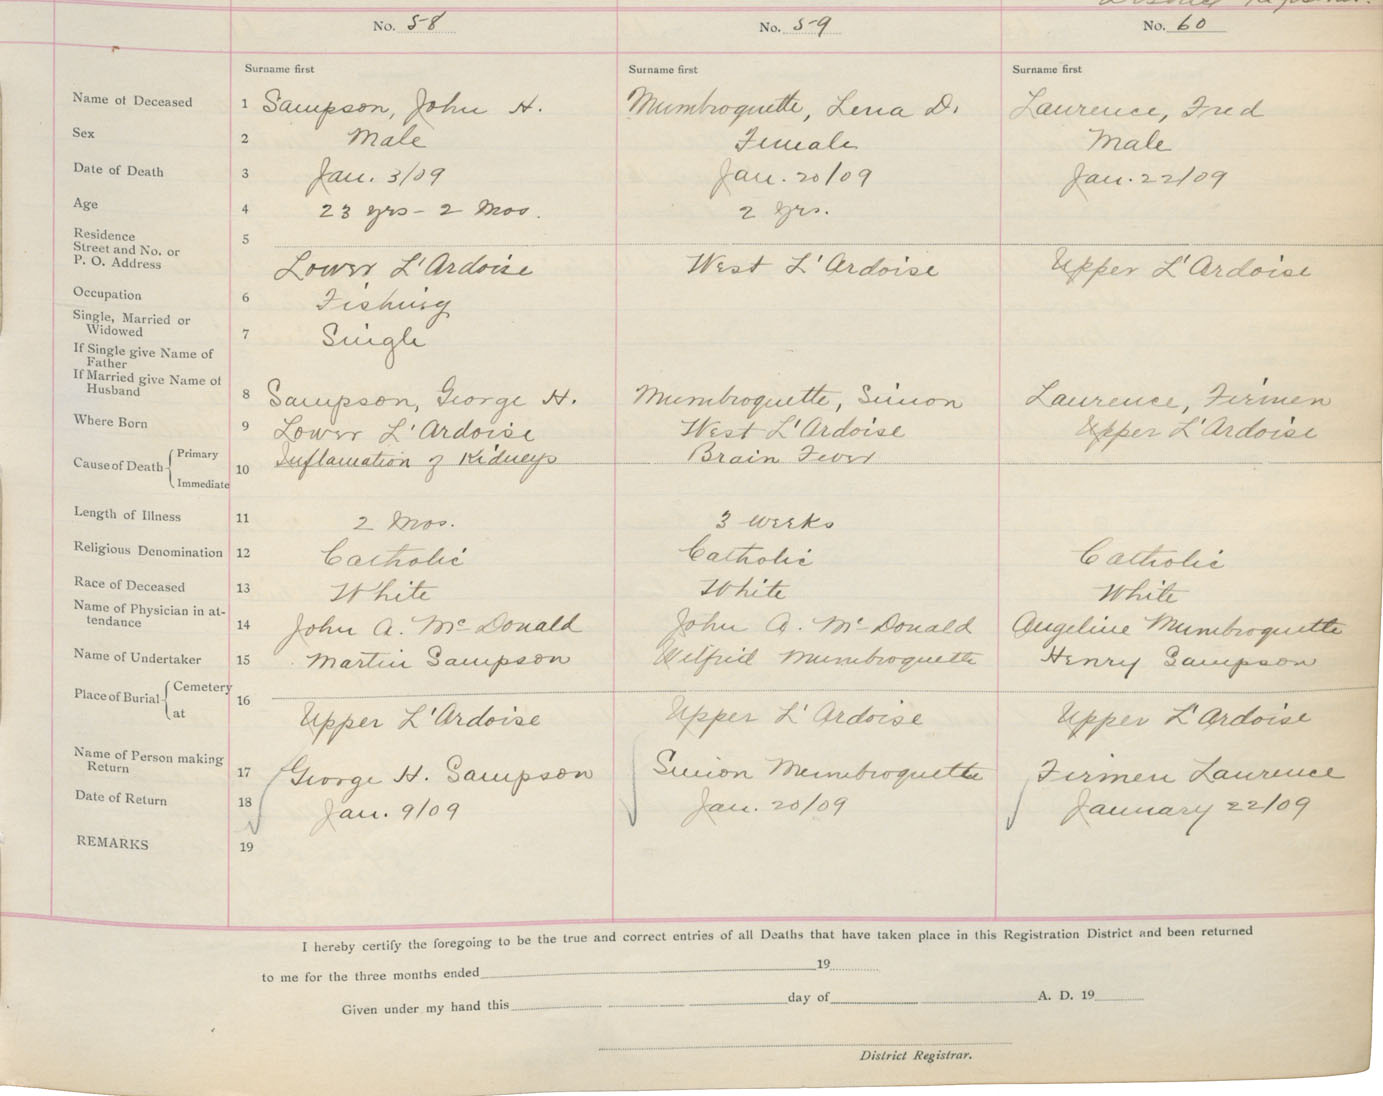 No. 58 No. 59 No. 60
Surname first Surname first Surname first
Name of Deceased 1 Sampson, John H. Mumbroquette, Lena D. Laurence, Fred
Sex 2 Male Female Male
Date of Death 3 Jan. 3/09 Jan. 20/09 Jan. 22/09
Age 4 23 yrs - 2 Mos. 2 yrs.
Residence 5
Street and No. or
P. O. Address Lower L'Ardoise West L'Ardoise Upper L'Ardoise
Occupation 6 Fishing
Single, Married or
Widowed 7 Single
If Single give Name of
Father
If Married give Name of
Husband 8 Sampson, George H. Mumbroquette, Simon Laurence, Firmen
Where Born 9 Lower L'Ardoise West L'Ardoise Upper L'Ardoise
Cause of Death Primary 10 Inflamation of Kidneys Brain Fever
Immediate
Length of Illness 11 2 Mos. 3 weeks
Religious Denomination 12 Catholic Catholic Catholic
Race of Deceased 13 White White White
Name of Physician in at-
tendance 14 John A. McDonald John A. McDonald Angeline Mumbroquette
Name of Undertaker 15 Martin Sampson Wilfrid Mumbroquette Henry Sampson
Place of Burial Cemetery 16
at Upper L'Ardoise Upper L'Ardoise Upper L'Ardoise
Name of Person making
Return 17 George H. Sampson Simon Mumbroquette Firmen Laurence
Date of Return 18 Jan. 9/09 Jan. 20/09 January 22/09
REMARKS 19
I hereby certify the foregoing to be the true and correct entries of all Deaths that have taken place in this Registration District and been returned
to me for the three months ended 19
Given under my hand this day of A. D. 19
District Registrar.